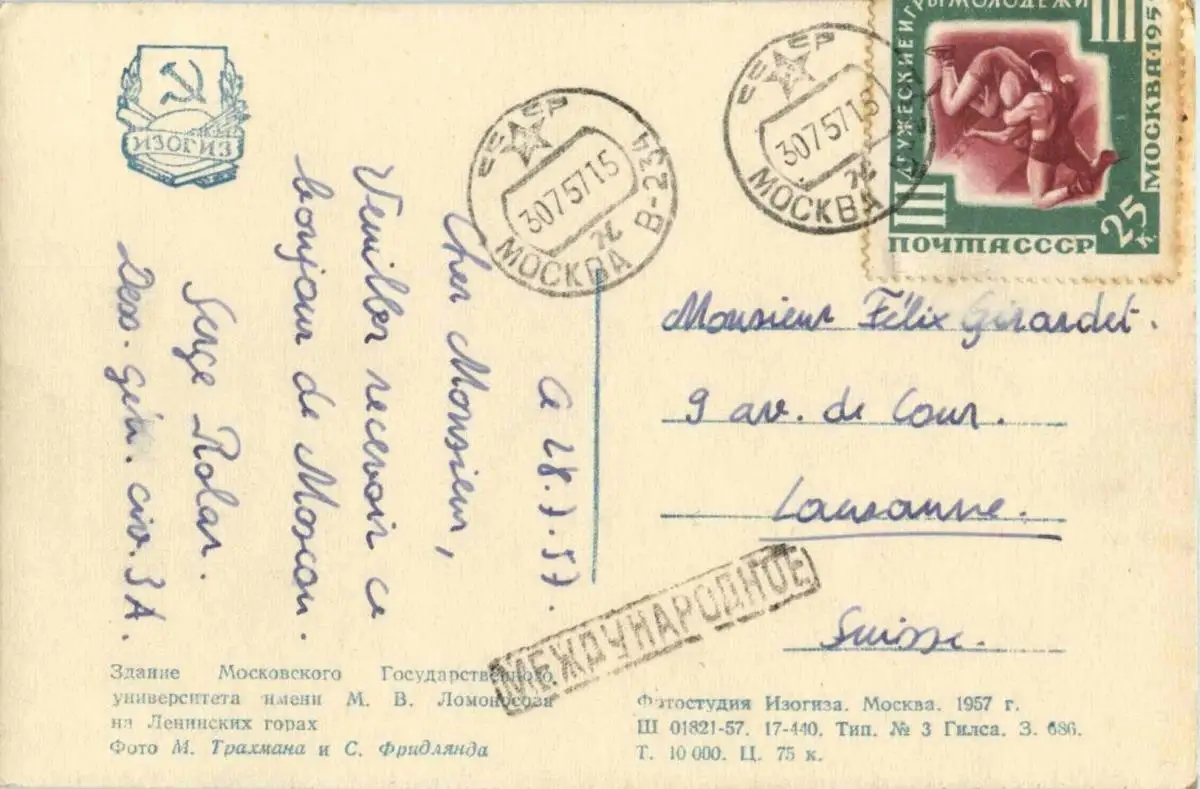 ИЗОГИЗ
СССР
30757.15
МОСКВА В-234
СССР
30757.15
МОСКВА
III ДРУЖЕСКИЕ ИГРЫ МОЛОДЕЖИ III
МОСКВА·195
ПОЧТА СССР
25 к.
a 28.7.57.
Cher Monsieur,
Veuillez recevoir ce
bonjour de Moscou.
Serge Rolar.
Dess. géni. civ. 3A.
Monsieur Félix Girardet.
9 av. de Cour.
Lausanne.
Suisse.
МЕЖДУНАРОДНОЕ
Здание Московского Государственного
университета имени М. В. Ломоносова
на Ленинских горах
Фото М. Трахмана и С. Фридлянда
Фотостудия Изогиза. Москва. 1957 г.
Ш 01821-57. 17-440. Тип. № 3 Гилса. З. 686.
Т. 10 000. Ц. 75 к.